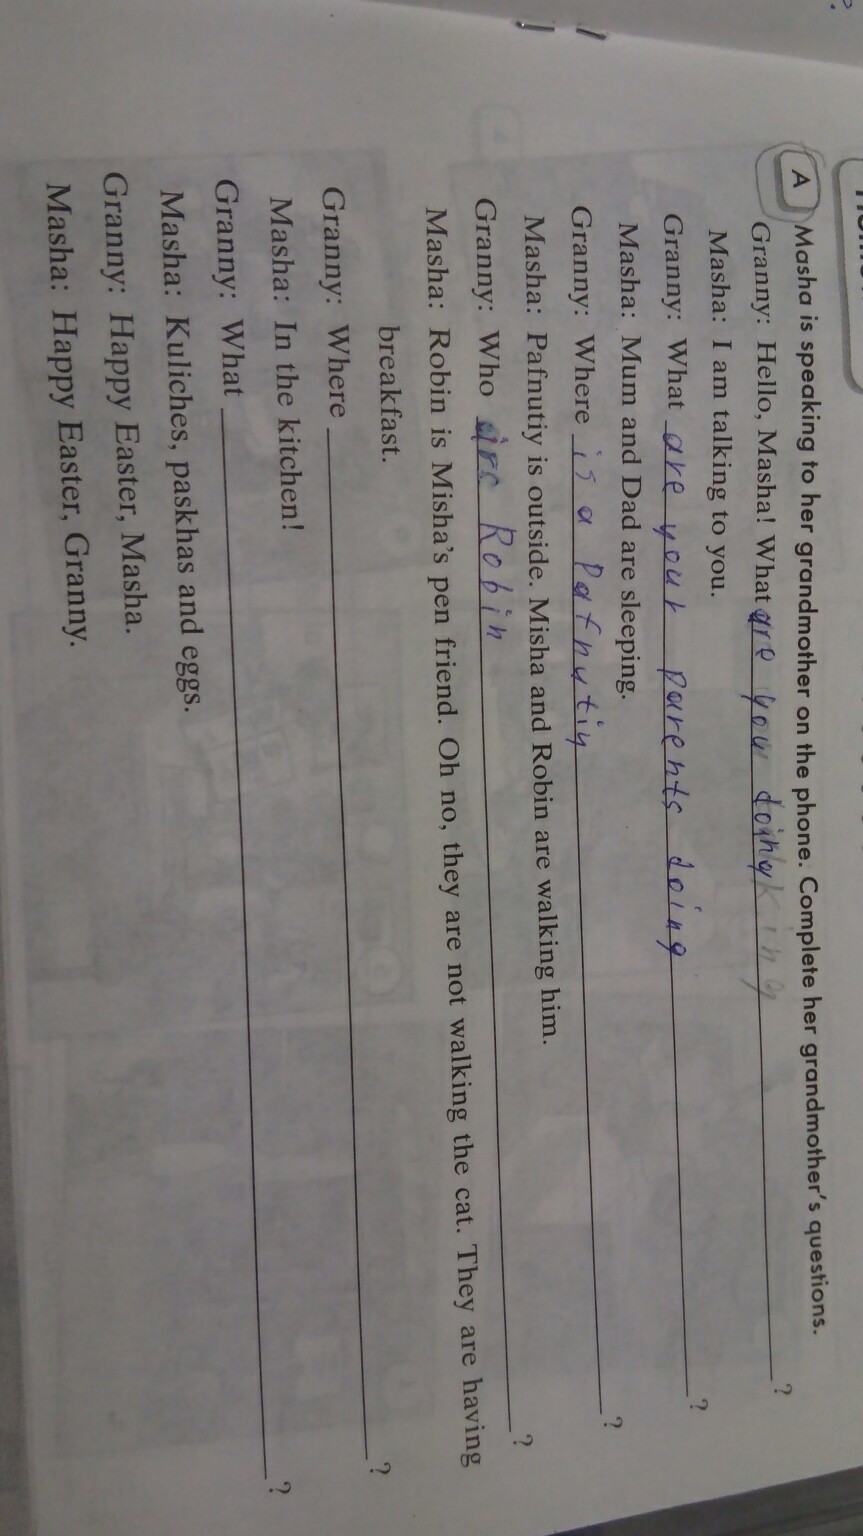 A Masha is speaking to her grandmother on the phone. Complete her grandmother's questions.
Granny: Hello, Masha! What are you doing ?
Masha: I am talking to you.
Granny: What are your parents doing ?
Masha: Mum and Dad are sleeping.
Granny: Where is a Pafnutiy ?
Masha: Pafnutiy is outside. Misha and Robin are walking him.
Granny: Who are Robin ?
Masha: Robin is Misha's pen friend. Oh no, they are not walking the cat. They are having
breakfast.
Granny: Where ?
Masha: In the kitchen!
Granny: What ?
Masha: Kuliches, paskhas and eggs.
Granny: Happy Easter, Masha.
Masha: Happy Easter, Granny.